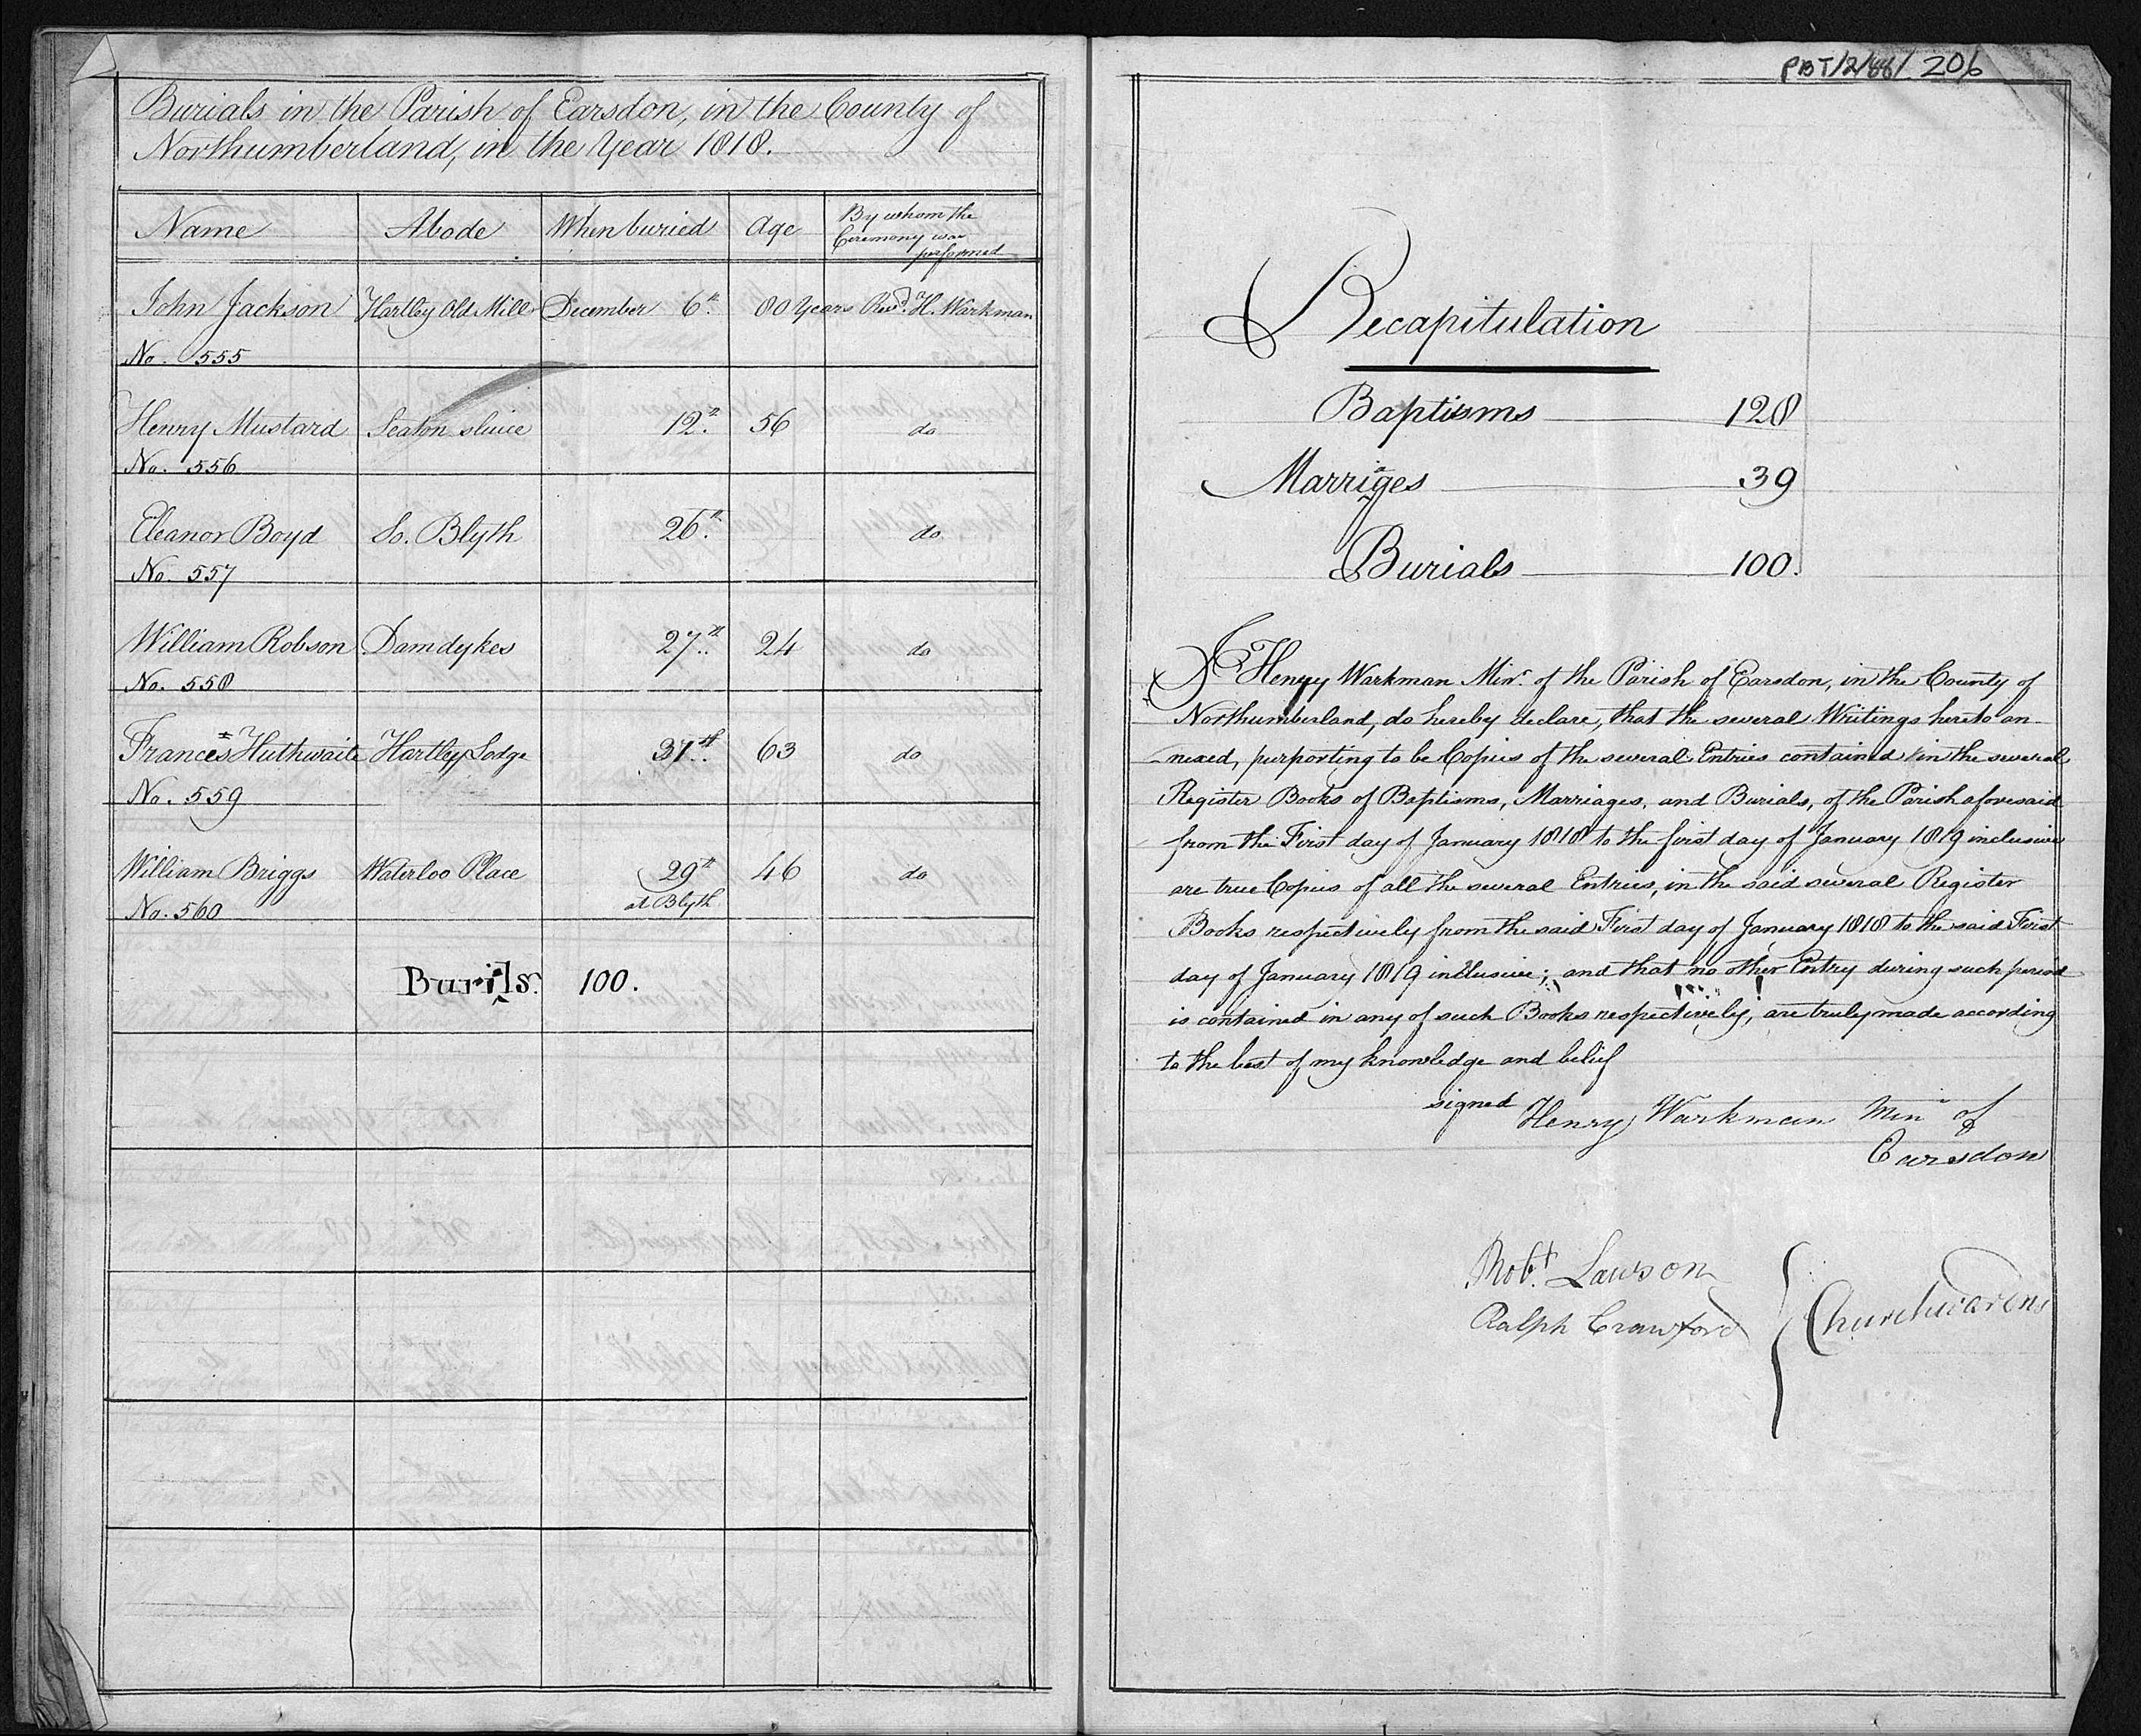 Burials in the Parish of Earsdon, in the County of
Northumberland, in the Year 1818.
Name Abode When buried Age By whom the Ceremony was performed
John Jackson Hartley Old Mill December 6th. 80 Years Revd. H. Warkman
No. 555
Henry Mustard Seaton sluice 12th. 56 do
No. 556
Eleanor Boyd So. Blyth 26th. do
No. 557
William Robson Damdykes 27th. 24 do
No. 558
Frances Huthwaite Hartley Lodge 31st. 63 do
No. 559
William Briggs Waterloo Place 29th 46 do
No. 560 at Blyth
Burils. 100.
PBT/2/88/206
Recapitulation
Baptisms 128
Marriages 39
Burials 100.
I Henry Warkman Minr. of the Parish of Earsdon, in the County of
Northumberland, do hereby declare, that the several Writings hereto an-
nexed, purporting to be Copies of the several Entries contained in the several
Register Books of Baptisms, Marriages, and Burials, of the Parish aforesaid
from the First day of January 1818 to the first day of January 1819 inclusive
are true Copies of all the several Entries, in the said several Register
Books respectively from the said First day of January 1818 to the said First
day of January 1819 inclusive; and that no other Entry during such period
is contained in any of such Books respectively, are truly made according
to the best of my knowledge and belief
signed Henry Warkman Minr of
Earsdon
Robt. Lawson
Ralph Crawford Churchwardens